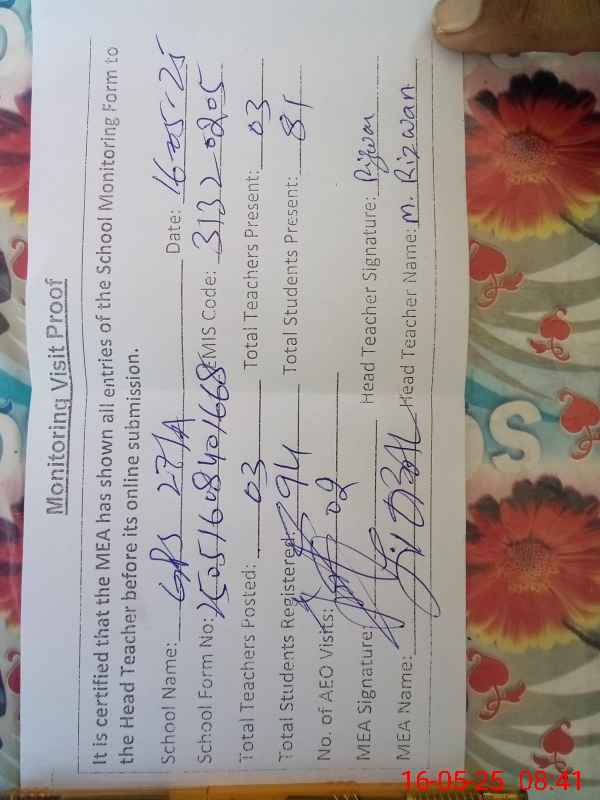 Monitoring Visit Proof
It is certified that the MEA has shown all entries of the School Monitoring Form to
the Head Teacher before its online submission.
School Name: GPS 27/A Date: 16-05-25
School Form No: 25051608401668 EMIS Code: 31320205
Total Teachers Posted: 03 Total Teachers Present: 03
Total Students Registered: 94 Total Students Present: 81
No. of AEO Visits: 02
MEA Signature Head Teacher Signature: Rizwan
MEA Name: Head Teacher Name: M. Rizwan
16-05-25 08:41